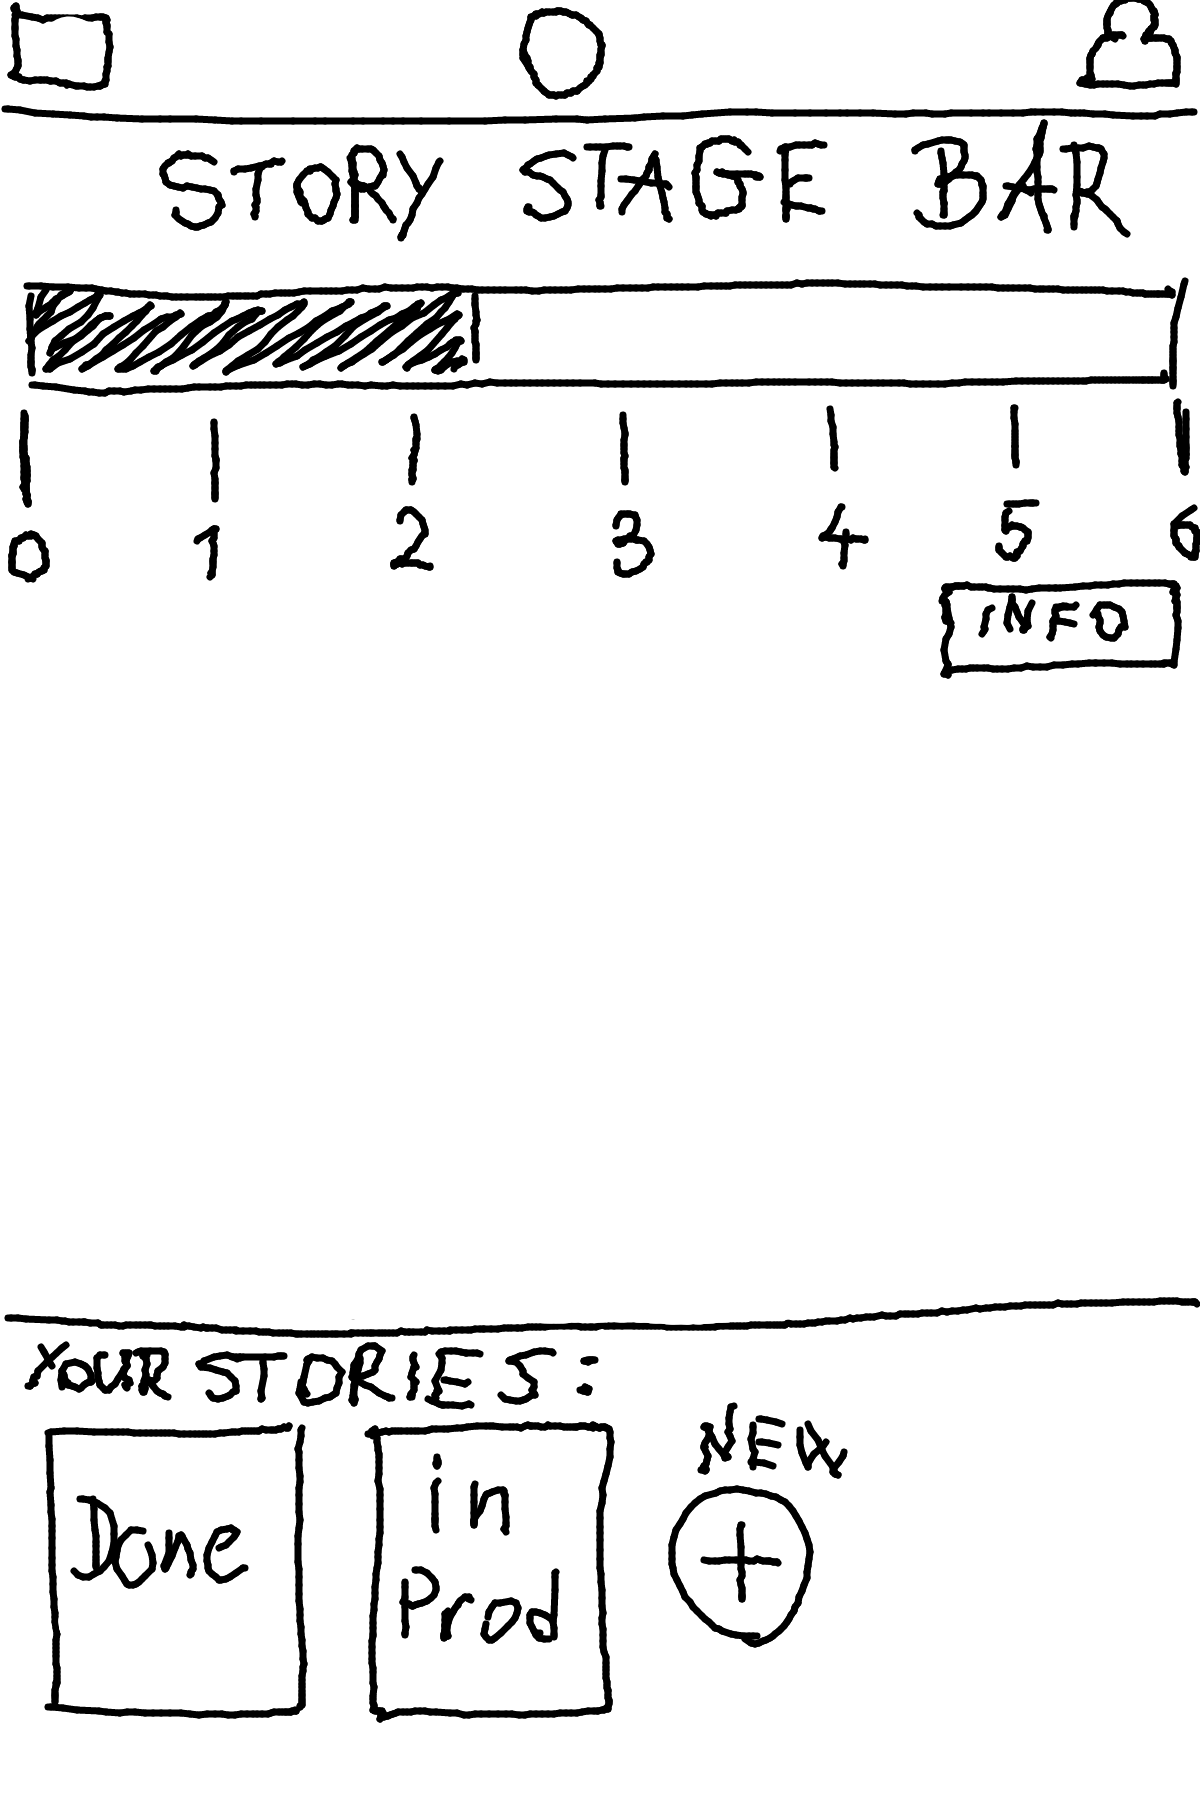 STORY STAGE BAR
0 1 2 3 4 5 6
iNFO
YOUR STORIES:
NEW
Done
in
Prod
+